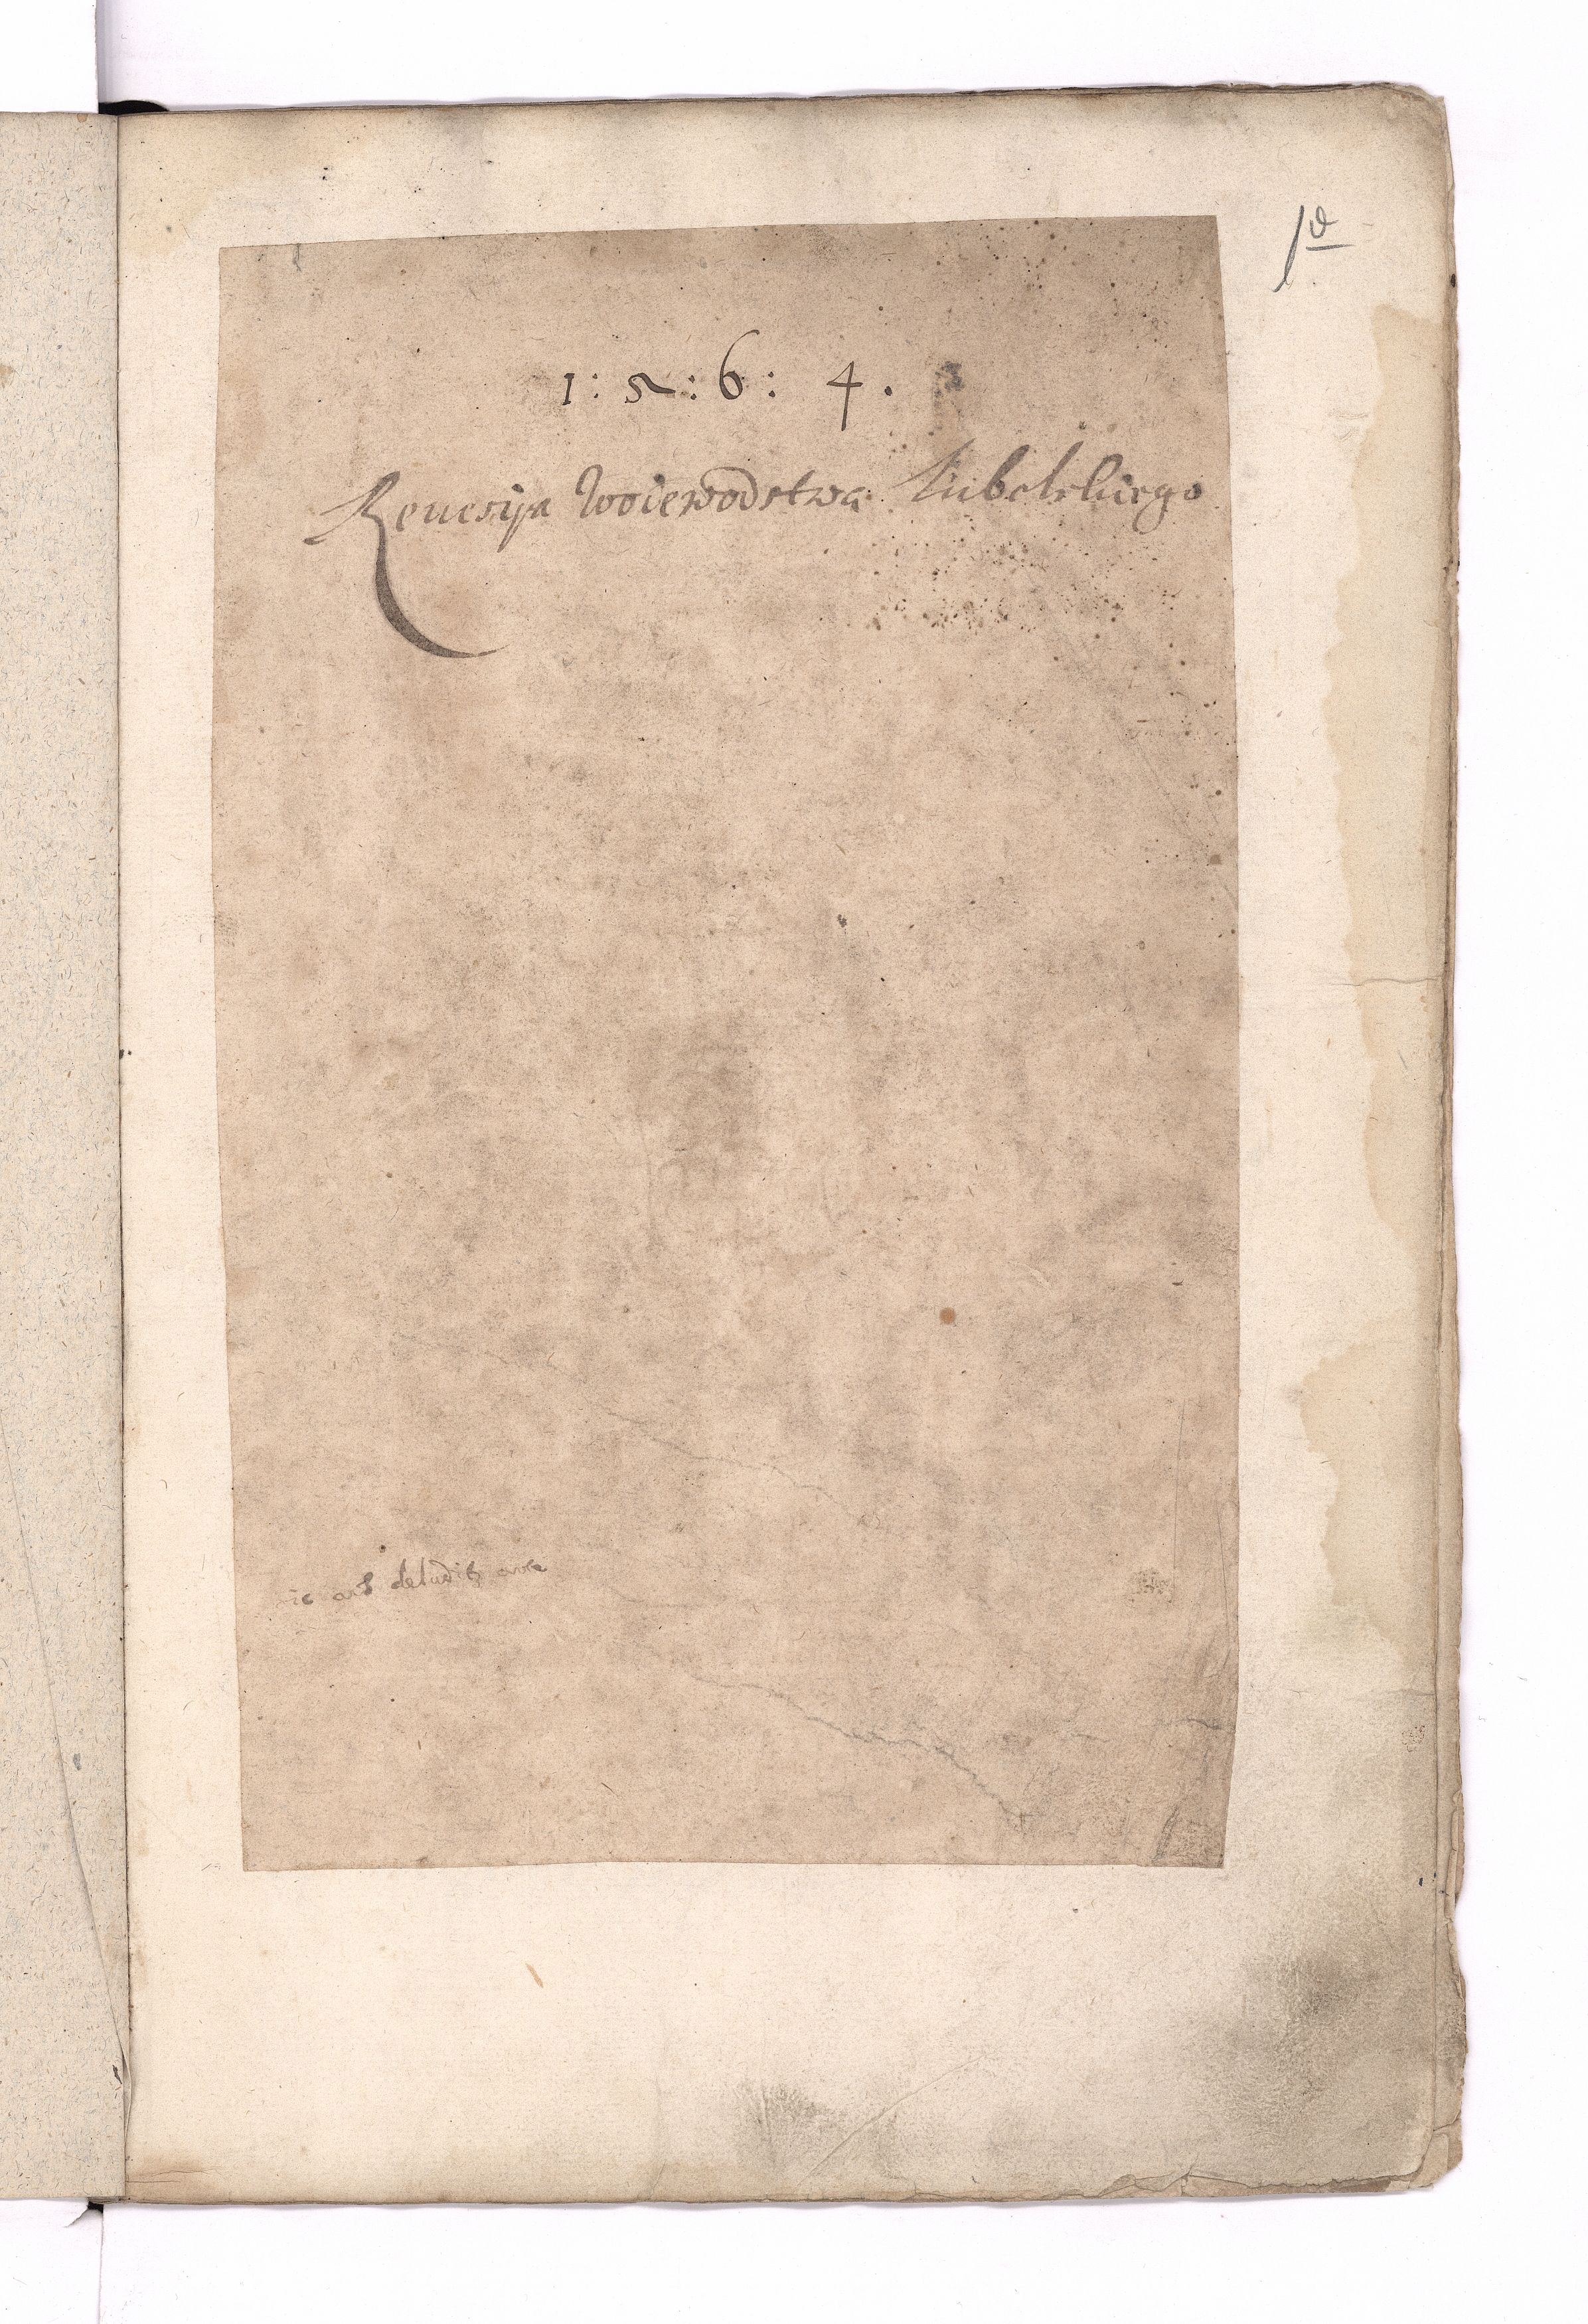 1 : 5 : 6 : 4 .
Reuesija Woiewodstwa Lubelskiego
ars deluditz